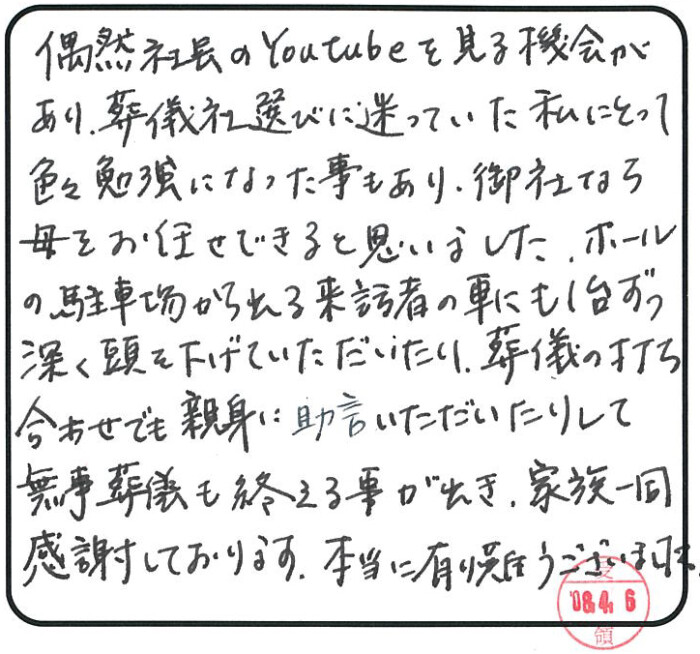 偶然社長のYoutubeを見る機会が
あり、葬儀社選びに迷っていた私にとって
色々勉強になった事もあり、御社なら
母をお任せできると思いました。ホール
の駐車場から出る来訪者の車にも1台ずつ
深く頭を下げていただいたり、葬儀の打ち
合わせでも親身に助言いただいたりして
無事葬儀も終える事が出き、家族一同
感謝しております。本当に有り難うございました
受
'18.4.6
領